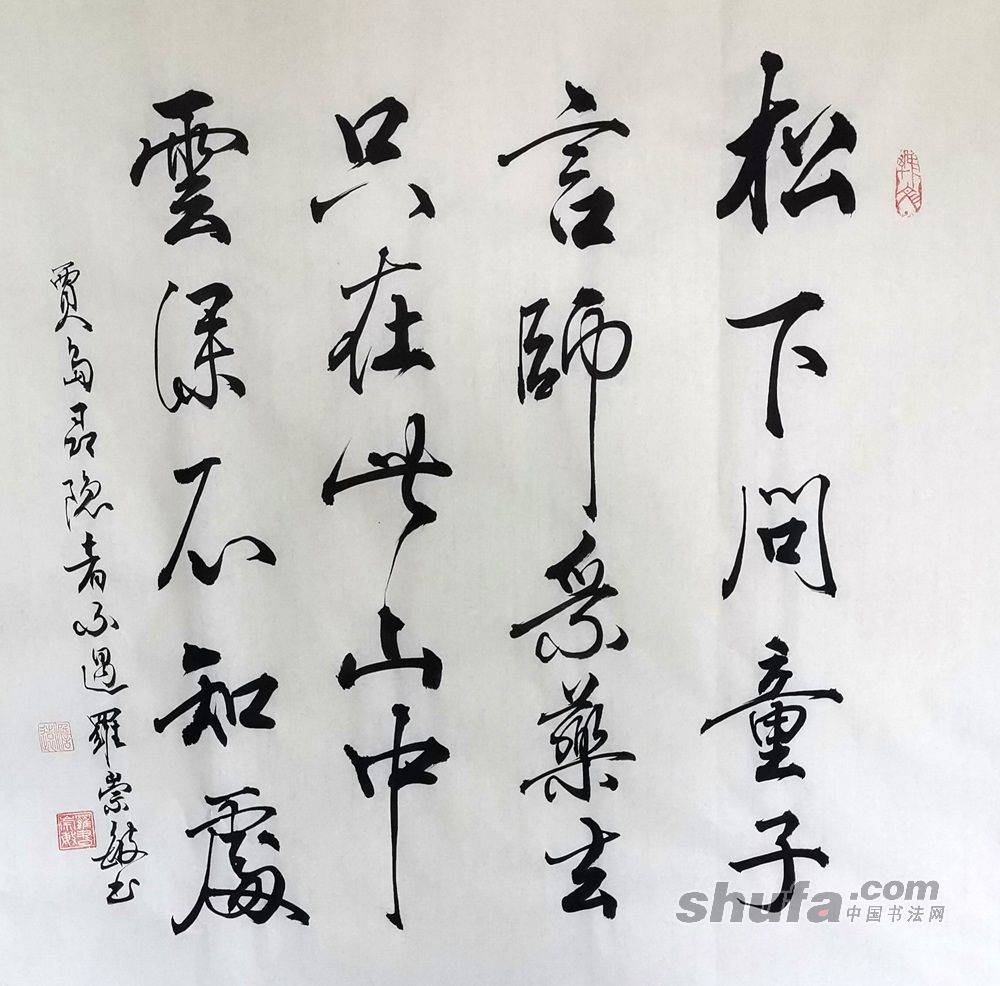 松下問童子
言師采藥去
只在此山中
雲深不知處
賈島尋隐者不遇 羅崇敏书
shufa.com
中国书法网